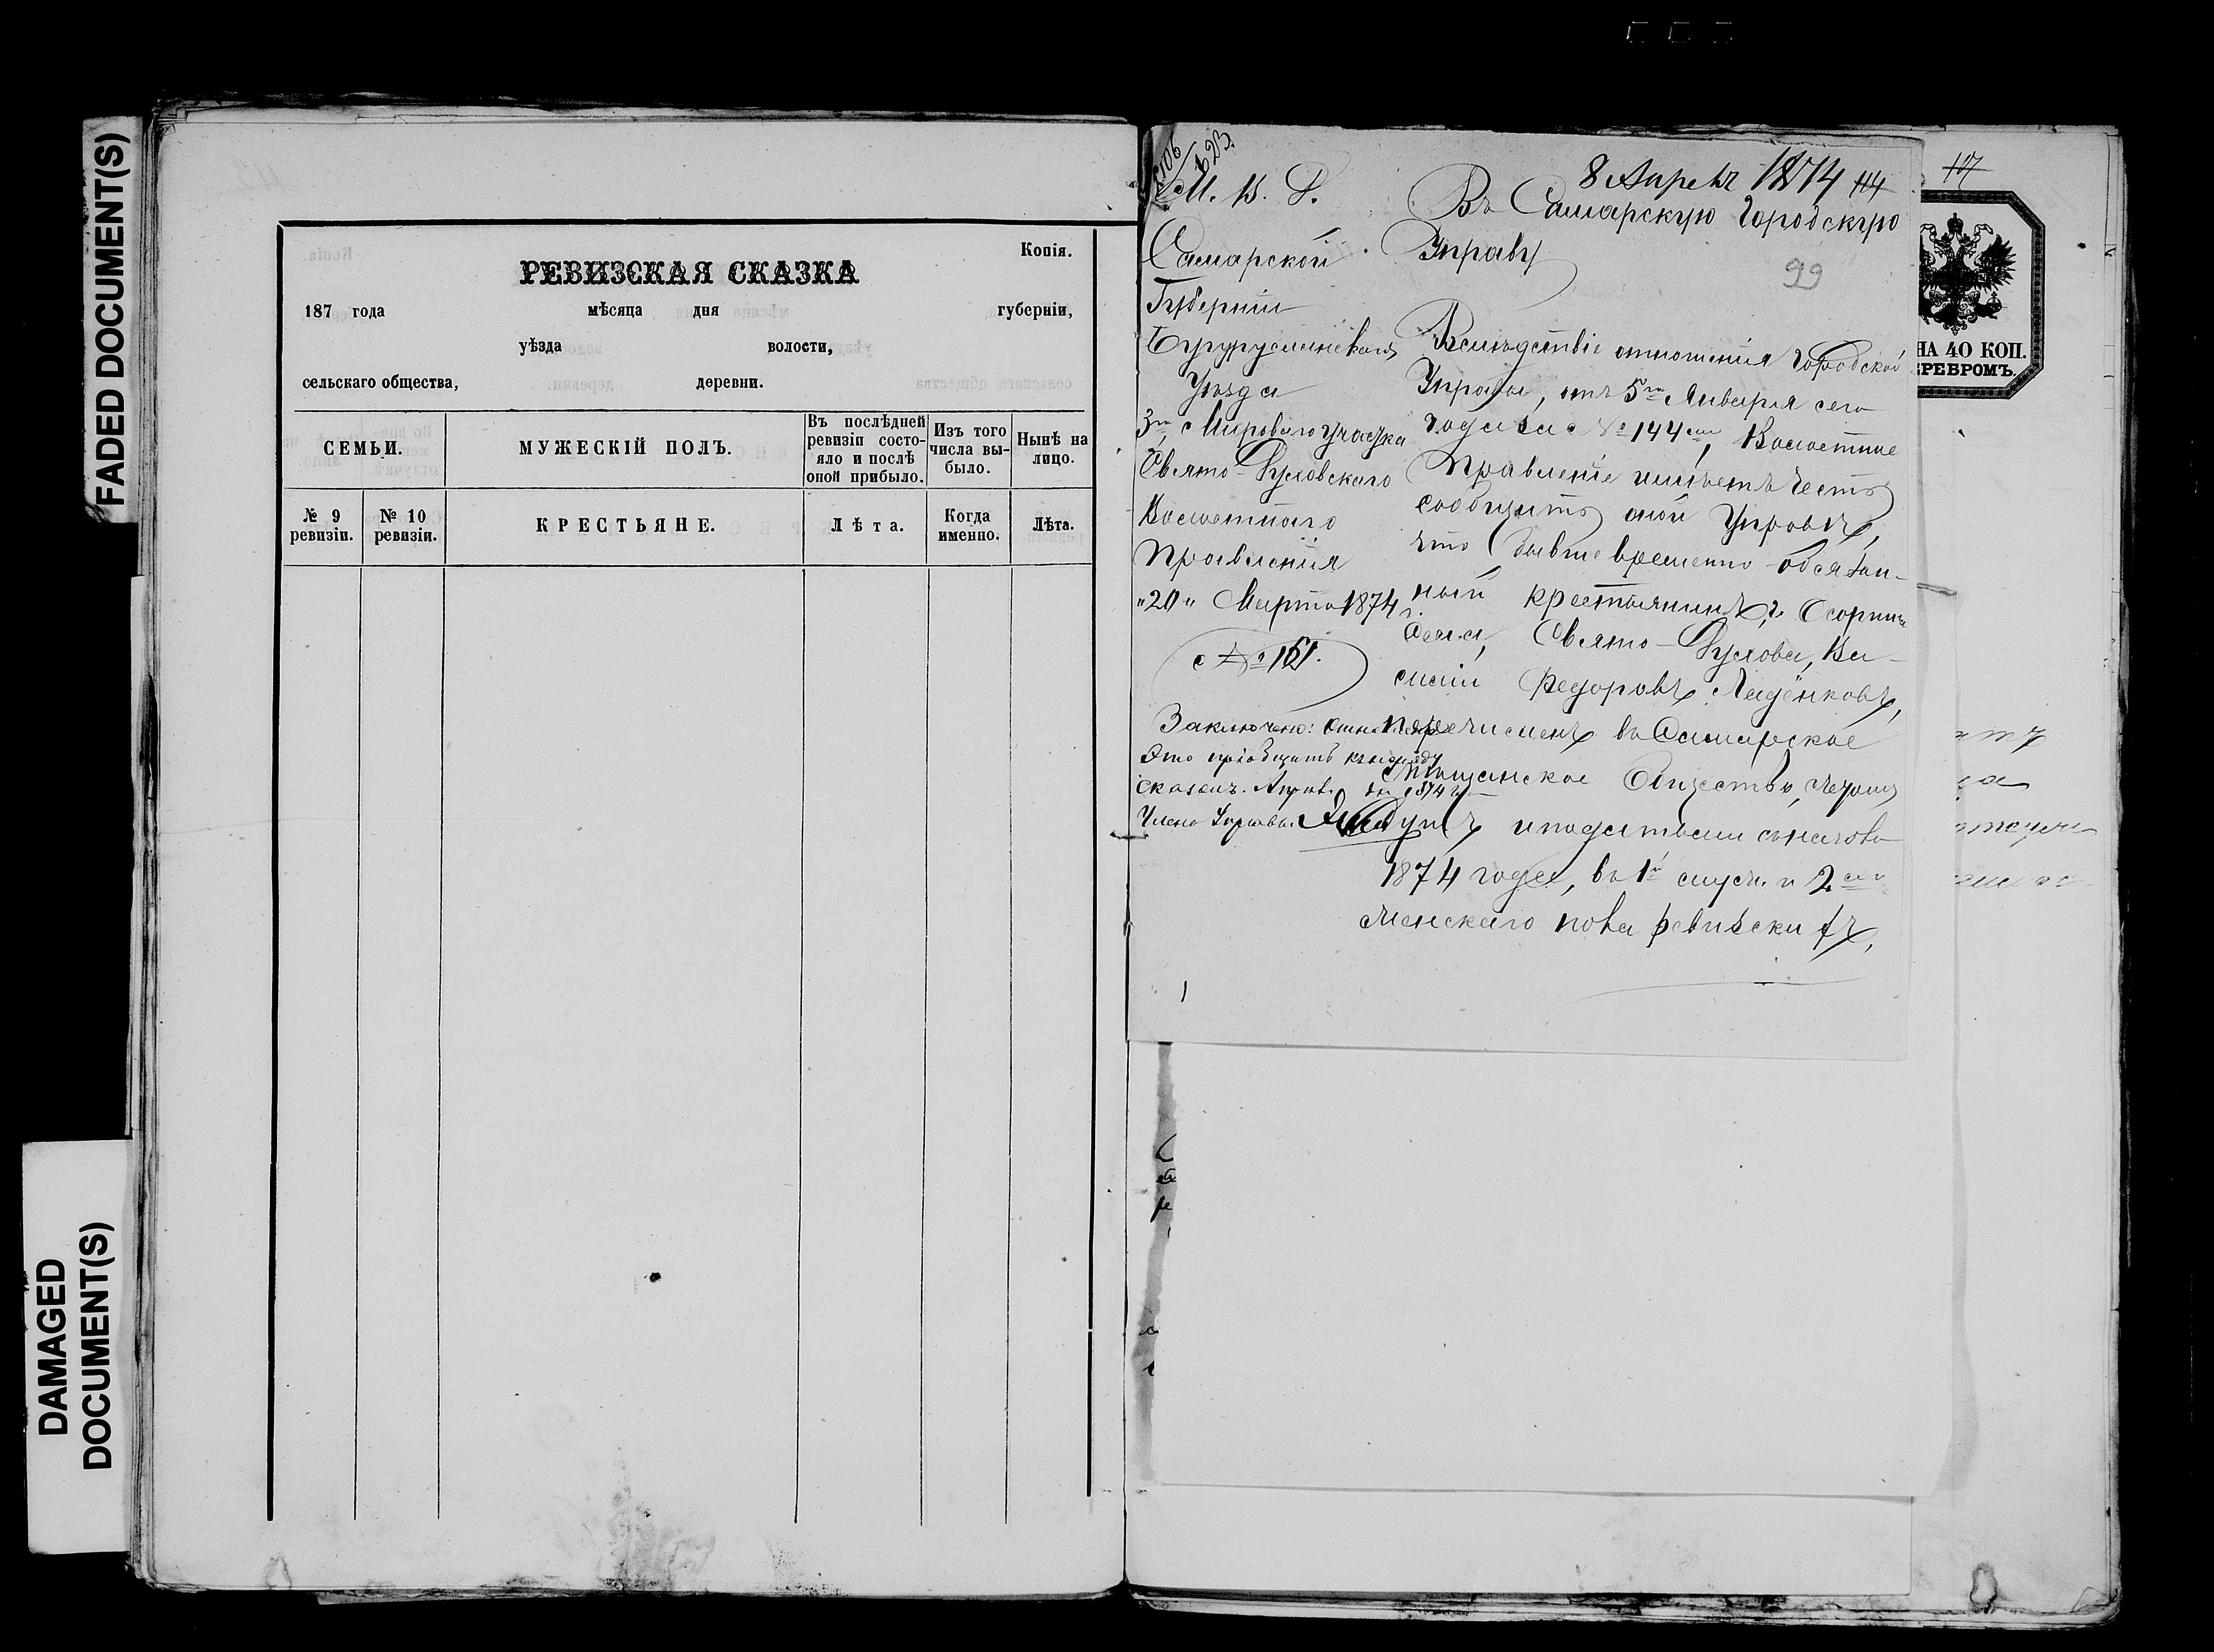 FADED DOCUMENT(S)
DAMAGED
DOCUMENT(S)
Копія.
РЕВИЗСКАЯ СКАЗКА
187 года мѣсяца дня губерніи,
уѣзда волости,
сельскаго общества, деревни.
СЕМЬИ.
МУЖЕСКІЙ ПОЛЪ.
Въ послѣдней
ревизіи состо-
яло и послѣ
оной прибыло.
Изъ того
числа вы-
было.
Нынѣ на
лицо.
№ 9
ревизіи.
№ 10
ревизіи.
КРЕСТЬЯНЕ.
Лѣта.
Когда
именно.
Лѣта.
М. В. Д.
Самарской
Губерніи
Бугурусланскаго
Уѣзда
3го Мироваго участка
Свято-Духовскаго
Волостнаго
Правленія
"20" Марта 1874 г.
№ 161.
Заключено:
Это пріобщить къ
сказкѣ. 1874 г.
Членъ Управы
8 Апрѣля 1874 114
Въ Самарскую Городскую
Управу
99
Вслѣдствіе отношенія Городской
Управы, отъ 5го Января сего
года за № 144мъ, Волостное
Правленіе имѣетъ честь
сообщить оной Управѣ,
что бывше временно-обязан-
ный крестьянинъ,
села, Свято-Духова, Ва-
силій Федоровъ Ладёнковъ,
перечисленъ въ Самарское
Мѣщанское Общество,
и податьми сначала
1874 года, въ 1й служ. и 2
женскаго пола ревизскихъ,
107
НА 40 КОП.
РЕБРОМЪ.